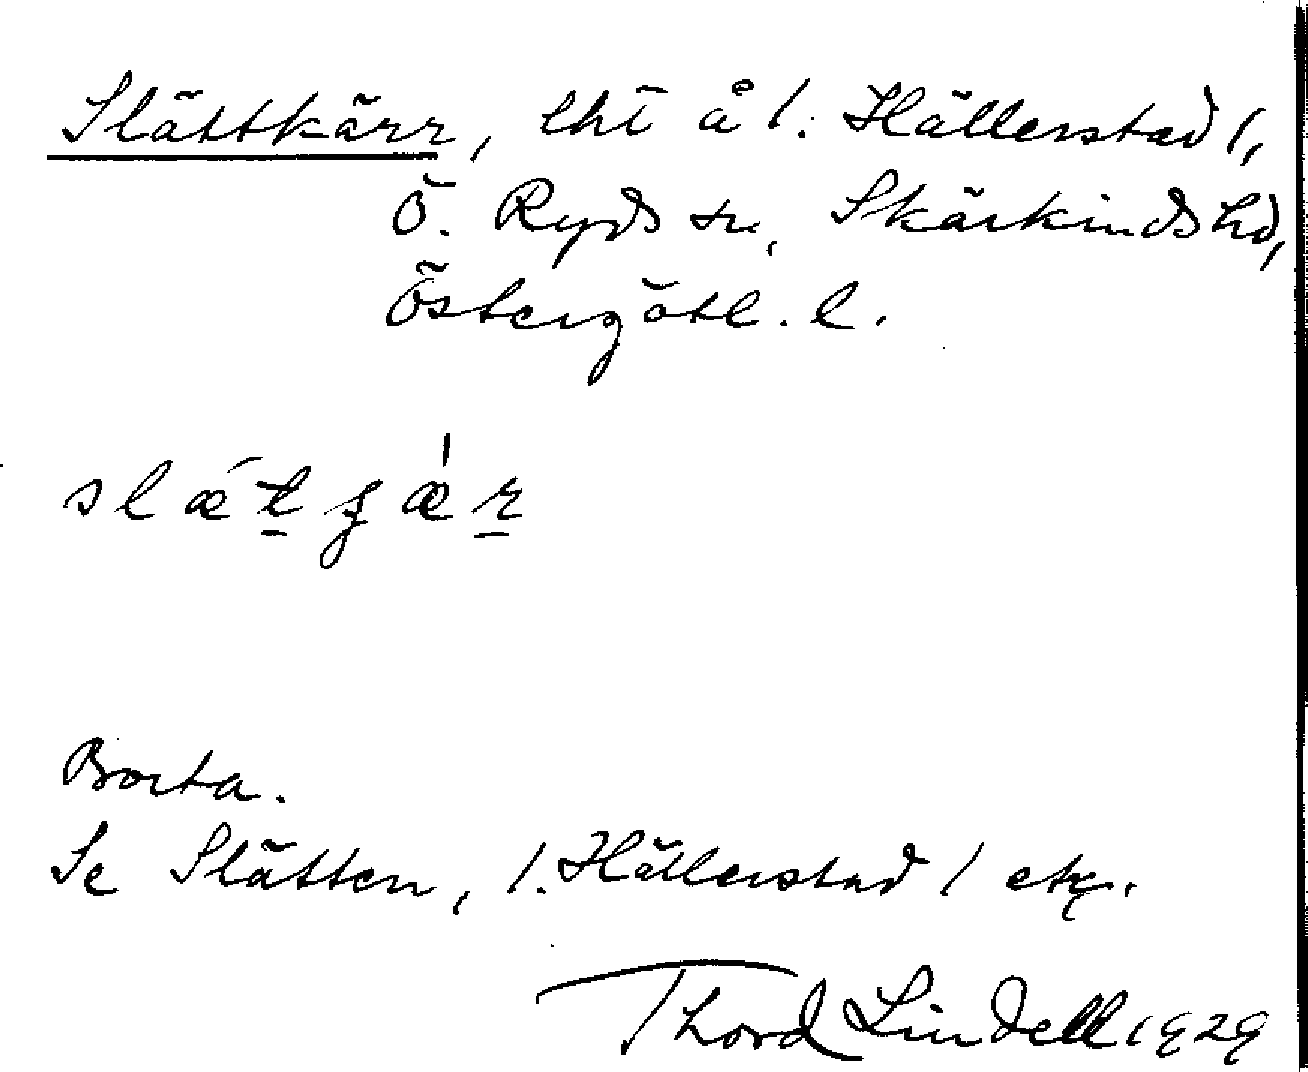 Slättkärr, lht å l. Hällerstad l,
Ö. Ryds sn, Skärkinds hd,
Östergötl. l.
slǽt̲ʒǽr̲
Borta.
Se Slätten, l. Hällerstad l etc.
Thord Lindell 1929